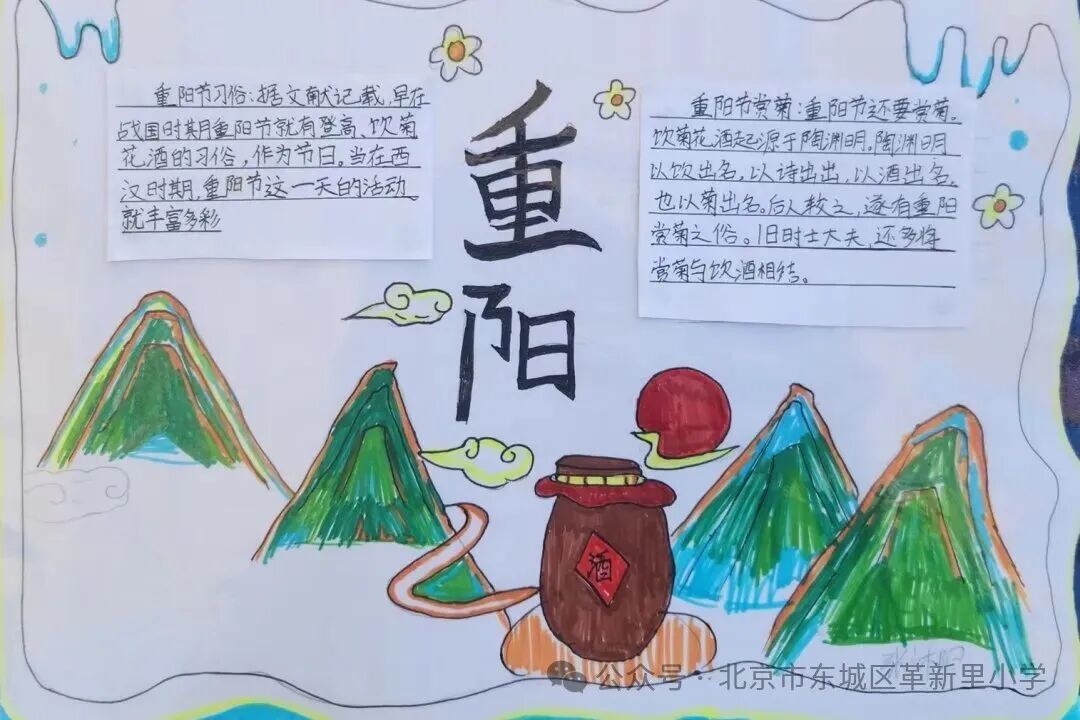 重阳节习俗：据文献记载，早在
战国时期重阳节就有登高、饮菊
花酒的习俗，作为节日。当在西
汉时期，重阳节这一天的活动
就丰富多彩
重
阳
重阳节赏菊：重阳节还要赏菊。
饮菊花酒起源于陶渊明。陶渊明
以饮出名，以诗出出，以酒出名，
也以菊出名。后人效之，遂有重阳
赏菊之俗。旧时士大夫，还多将
赏菊与饮酒相结。
酒
公众号·北京市东城区革新里小学